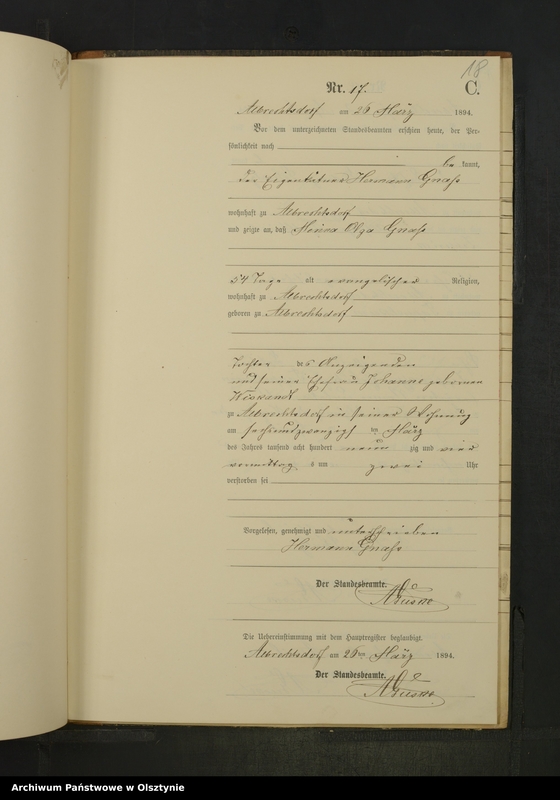 18
Nr. 17.
C.
Albrechtsdorf am 26 März 1894.
Vor dem unterzeichneten Standesbeamten erschien heute, der Per-
sönlichkeit nach
be kannt,
der Eigenkätner Hermann
wohnhaft zu Albrechtsdorf
und zeigte an, daß Minna Olga
54 Tage alt evangelischer Religion,
wohnhaft zu Albrechtsdorf
geboren zu Albrechtsdorf
Tochter des Anzeigenden
und seiner Ehefrau Johanne geborenen
zu Albrechtsdorf in seiner Wohnung
am sechsundzwanzigst en März
des Jahres tausend acht hundert neun zig und vier
vormittag s um zwei Uhr
verstorben sei
Vorgelesen, genehmigt und unterschrieben
Hermann
Der Standesbeamte.
Die Uebereinstimmung mit dem Hauptregister beglaubigt.
Albrechtsdorf am 26 ten März 1894.
Der Standesbeamte.
Archiwum Państwowe w Olsztynie